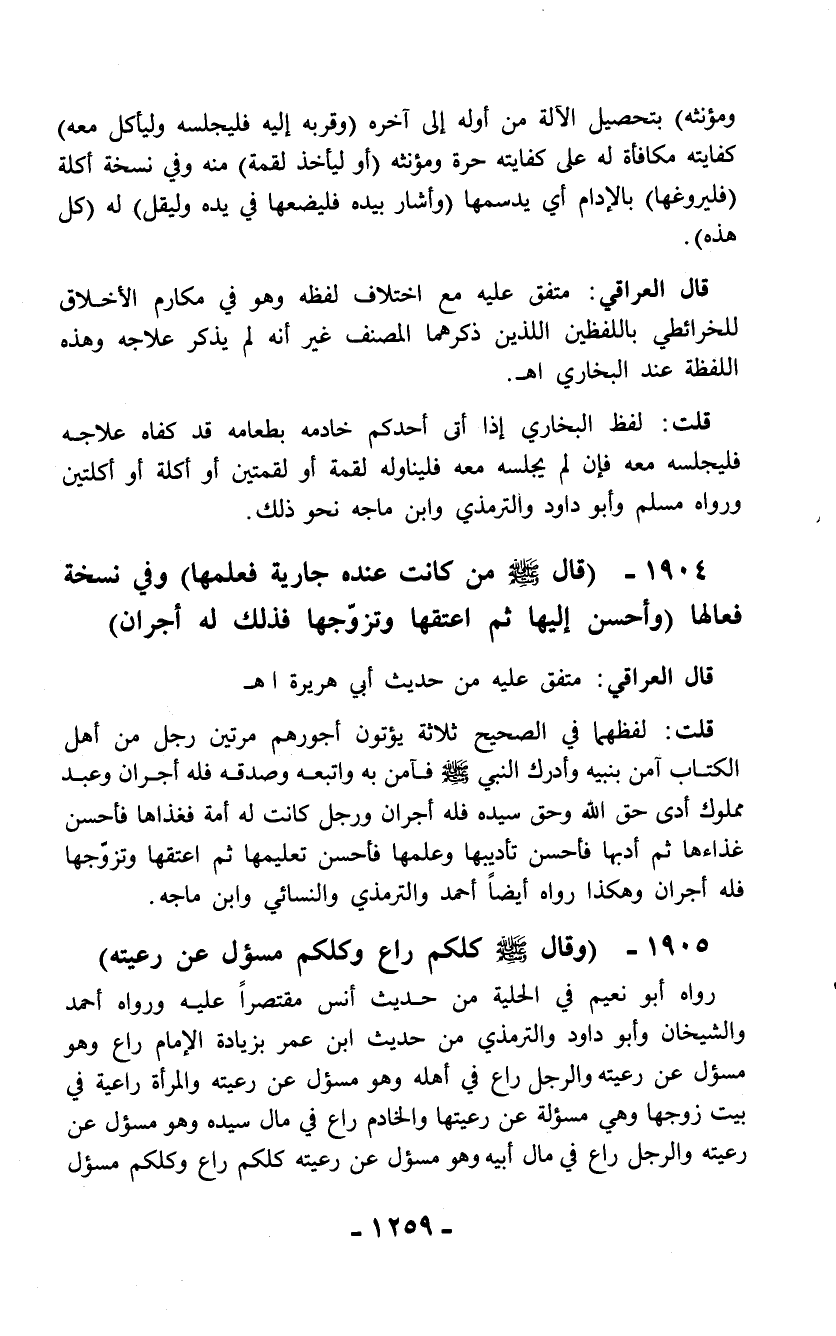 ومؤنثه) بتحصيل الآلة من أوله إلى آخره (وقربه إليه فليجلسه وليأكل معه)
كفايته مكافأة له على كفايته حرة ومؤنثه (أو ليأخذ لقمة) منه وفي نسخة أكلة
(فليروغها) بالإدام أي يدسمها (وأشار بيده فليضعها في يده وليقل) له (كل
هذه).
قال العراقي: متفق عليه مع اختلاف لفظه وهو في مكارم الأخلاق
للخرائطي باللفظين اللذين ذكرهما المصنف غير أنه لم يذكر علاجه وهذه
اللفظة عند البخاري اهـ.
قلت: لفظ البخاري إذا أتى أحدكم خادمه بطعامه قد كفاه علاجه
فليجلسه معه فإن لم يجلسه معه فليناوله لقمة أو لقمتين أو أكلة أو أكلتين
ورواه مسلم وأبو داود والترمذي وابن ماجه نحو ذلك.
١٩٠٤ - (قال ﷺ من كانت عنده جارية فعلمها) وفي نسخة
فعالها (وأحسن إليها ثم اعتقها وتزوّجها فذلك له أجران)
قال العراقي: متفق عليه من حديث أبي هريرة ا هـ
قلت: لفظهما في الصحيح ثلاثة يؤتون أجورهم مرتين رجل من أهل
الكتاب آمن بنبيه وأدرك النبي ﷺ فآمن به واتبعه وصدقه فله أجران وعبد
مملوك أدى حق الله وحق سيده فله أجران ورجل كانت له أمة فغذاها فأحسن
غذاءها ثم أدبها فأحسن تأديبها وعلمها فأحسن تعليمها ثم اعتقها وتزوّجها
فله أجران وهكذا رواه أيضاً أحمد والترمذي والنسائي وابن ماجه.
١٩٠٥ - (وقال ﷺ كلكم راع وكلكم مسؤل عن رعيته)
رواه أبو نعيم في الحلية من حديث أنس مقتصراً عليه ورواه أحمد
والشيخان وأبو داود والترمذي من حديث ابن عمر بزيادة الإمام راع وهو
مسؤل عن رعيته والرجل راع في أهله وهو مسؤل عن رعيته والمرأة راعية في
بيت زوجها وهي مسؤلة عن رعيتها والخادم راع في مال سيده وهو مسؤل عن
رعيته والرجل راع في مال أبيه وهو مسؤل عن رعيته كلكم راع وكلكم مسؤل
- ١٢٥٩ -